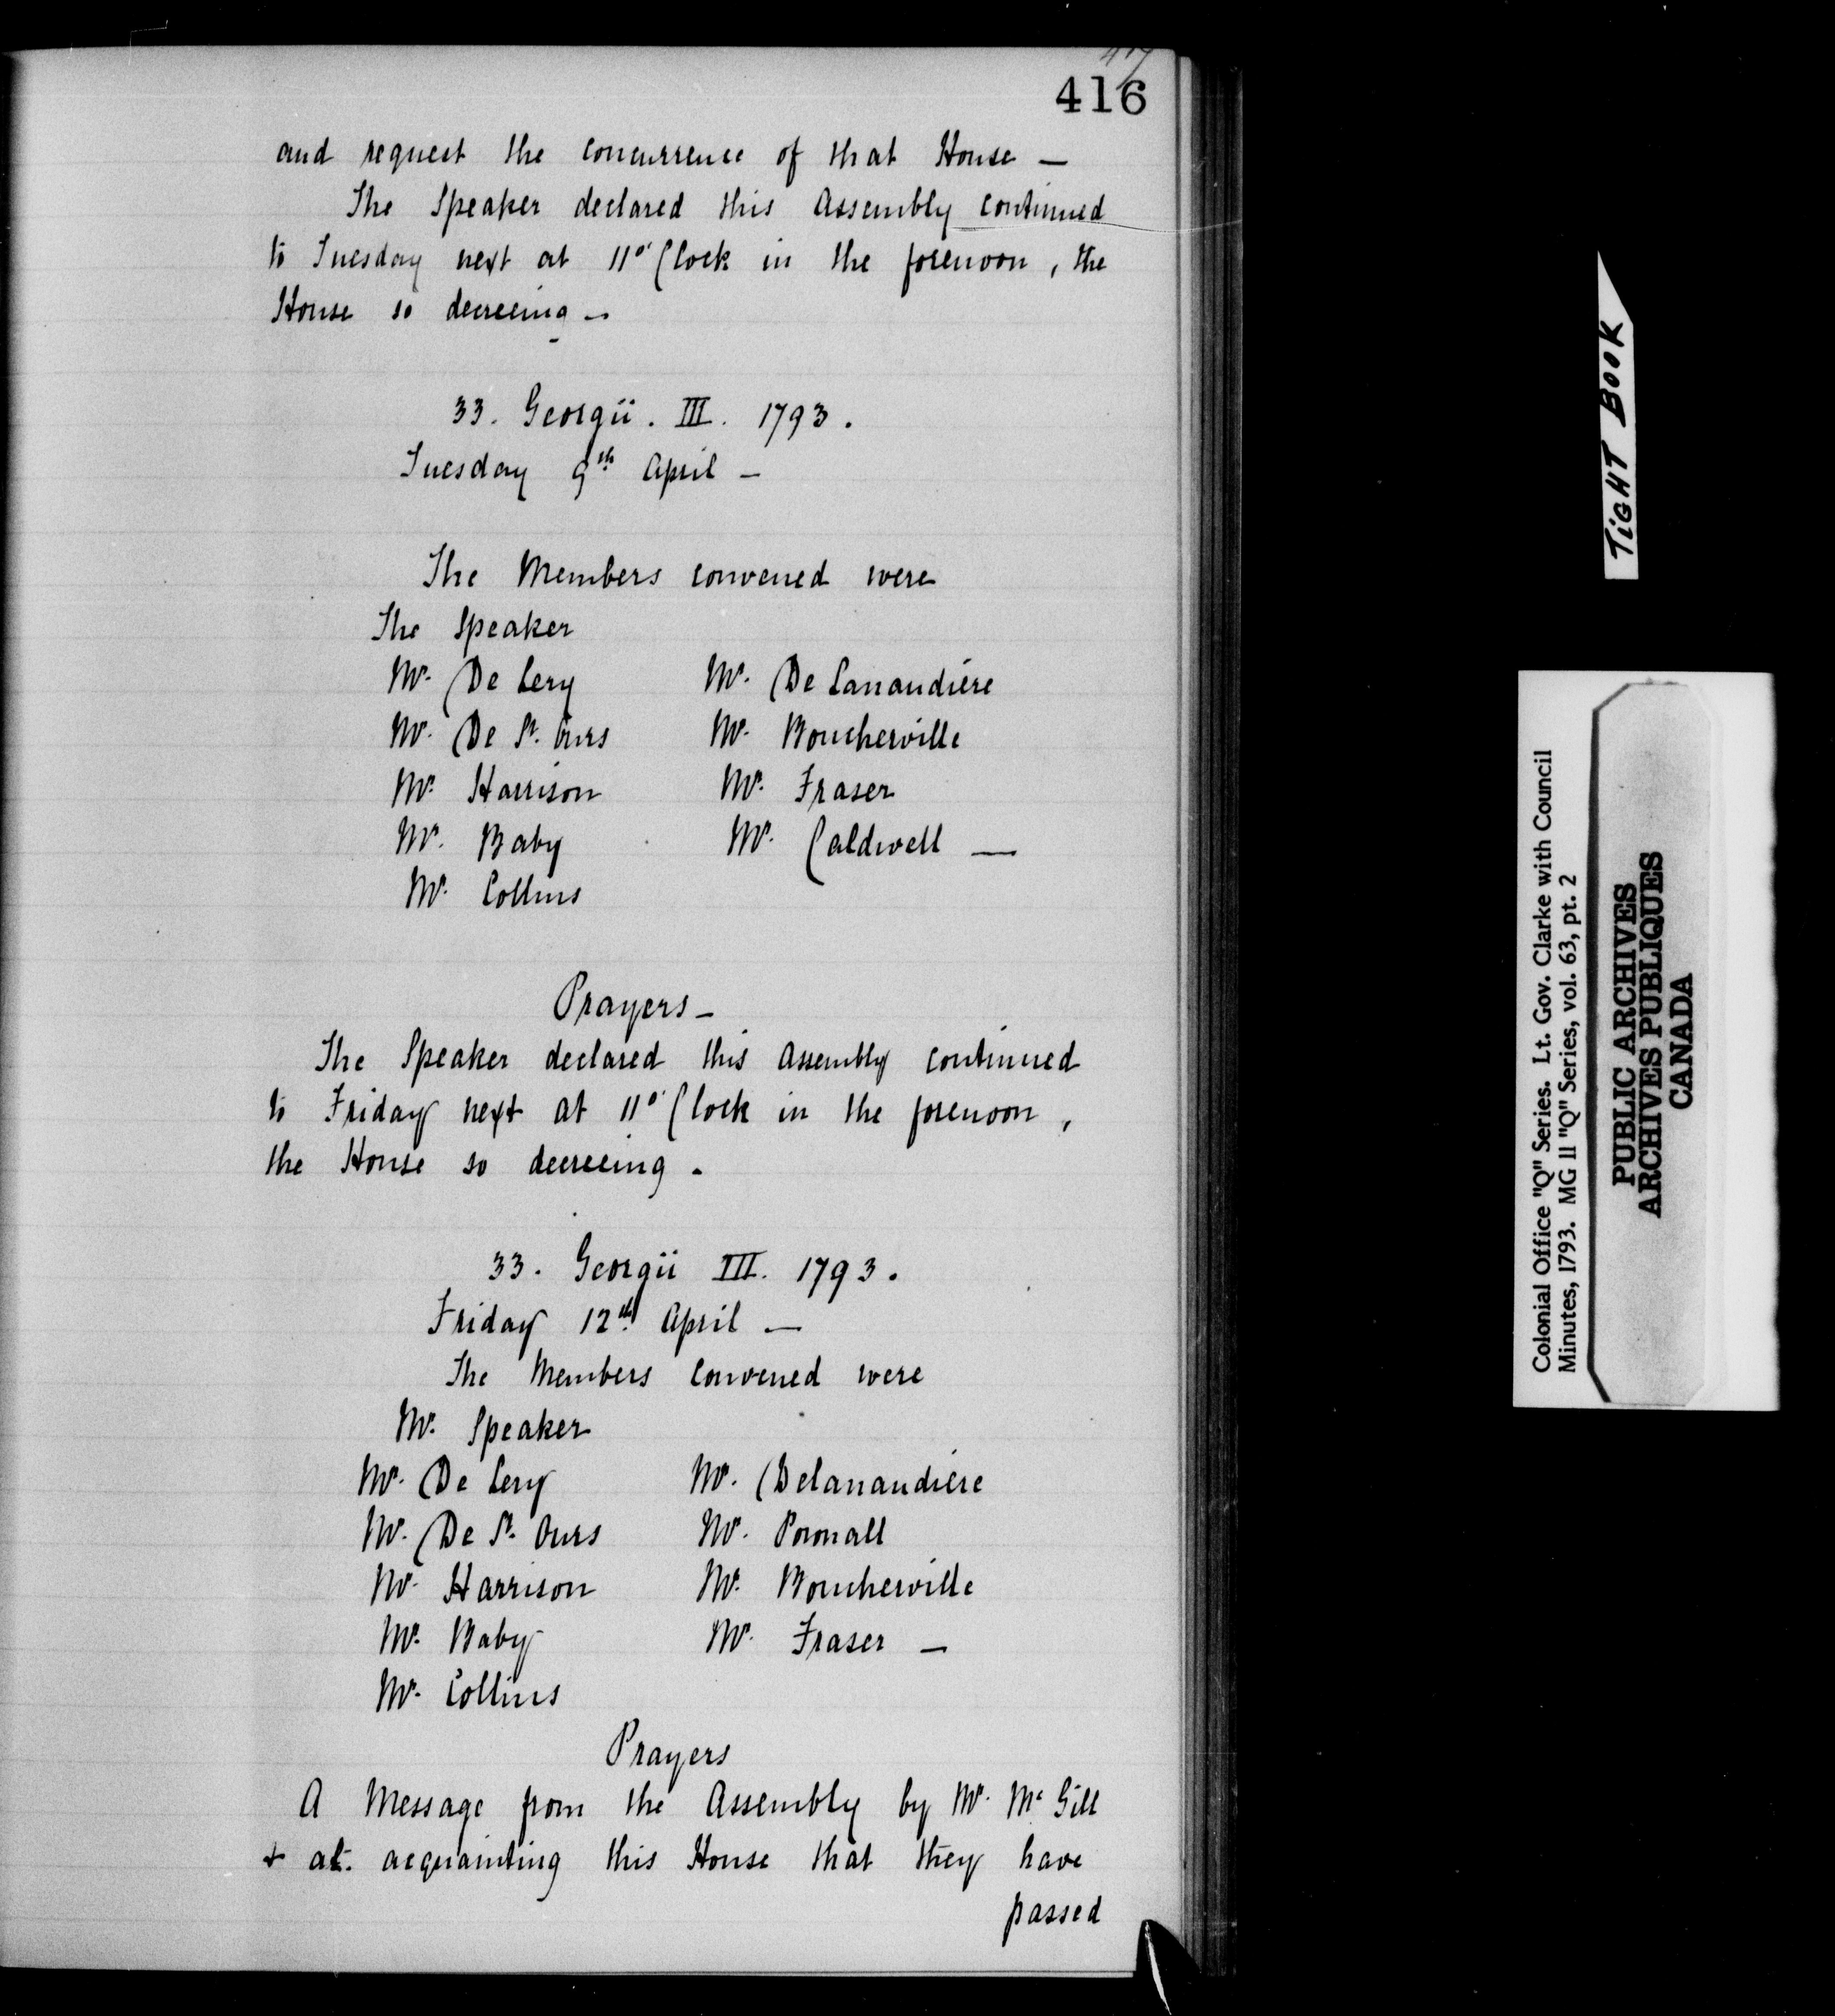 416
and request the concurrence of that House —
The Speaker declared this Assembly continued
to Tuesday next at 11 o' Clock in the forenoon, the
House so decreeing —
33. Georgii. III. 1793.
Tuesday 9th April —
The Members convened were
The Speaker
Mr. De Lery Mr. De Lanaudiere
Mr. De St. Ours Mr. Boucherville
Mr. Harrison Mr. Fraser
Mr. Baby Mr. Caldwell —
Mr. Collins
Prayers —
The Speaker declared this Assembly continued
to Friday next at 11 o' Clock in the forenoon,
the House so decreeing.
33. Georgii III. 1793.
Friday 12th April —
The Members convened were
Mr. Speaker
Mr. De Lery Mr. Delanaudiere
Mr. De St. Ours Mr. Pownall
Mr. Harrison Mr. Boucherville
Mr. Baby Mr. Fraser —
Mr. Collins
Prayers
A Message from the Assembly by Mr. Mc Gill
& al. acquainting this House that they have
passed
TIGHT BOOK
Colonial Office "Q" Series. Lt. Gov. Clarke with Council
Minutes, 1793. MG 11 "Q" Series, vol. 63, pt. 2
PUBLIC ARCHIVES
ARCHIVES PUBLIQUES
CANADA